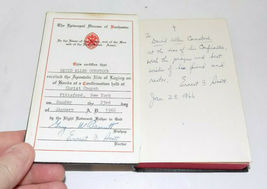 The Episcopal Diocese of Rochester
In the Name of the Father, and of the Son
and of the Holy Ghost. Amen.
This certifies that
DAVID ALLEN
received the Apostolic Rite of Laying on
of Hands or Confirmation held at
Christ Church
Pittsford, New York
on Sunday the 23rd day
of January A.D. 1966
by the Right Reverend Father in God
Bishop
Ernest G. Scott
Rector
To
David Allen
at the time of his Confirmation,
With the prayers and best
wishes of his friend and
rector,
Ernest G. Scott
Jan 23, 1966